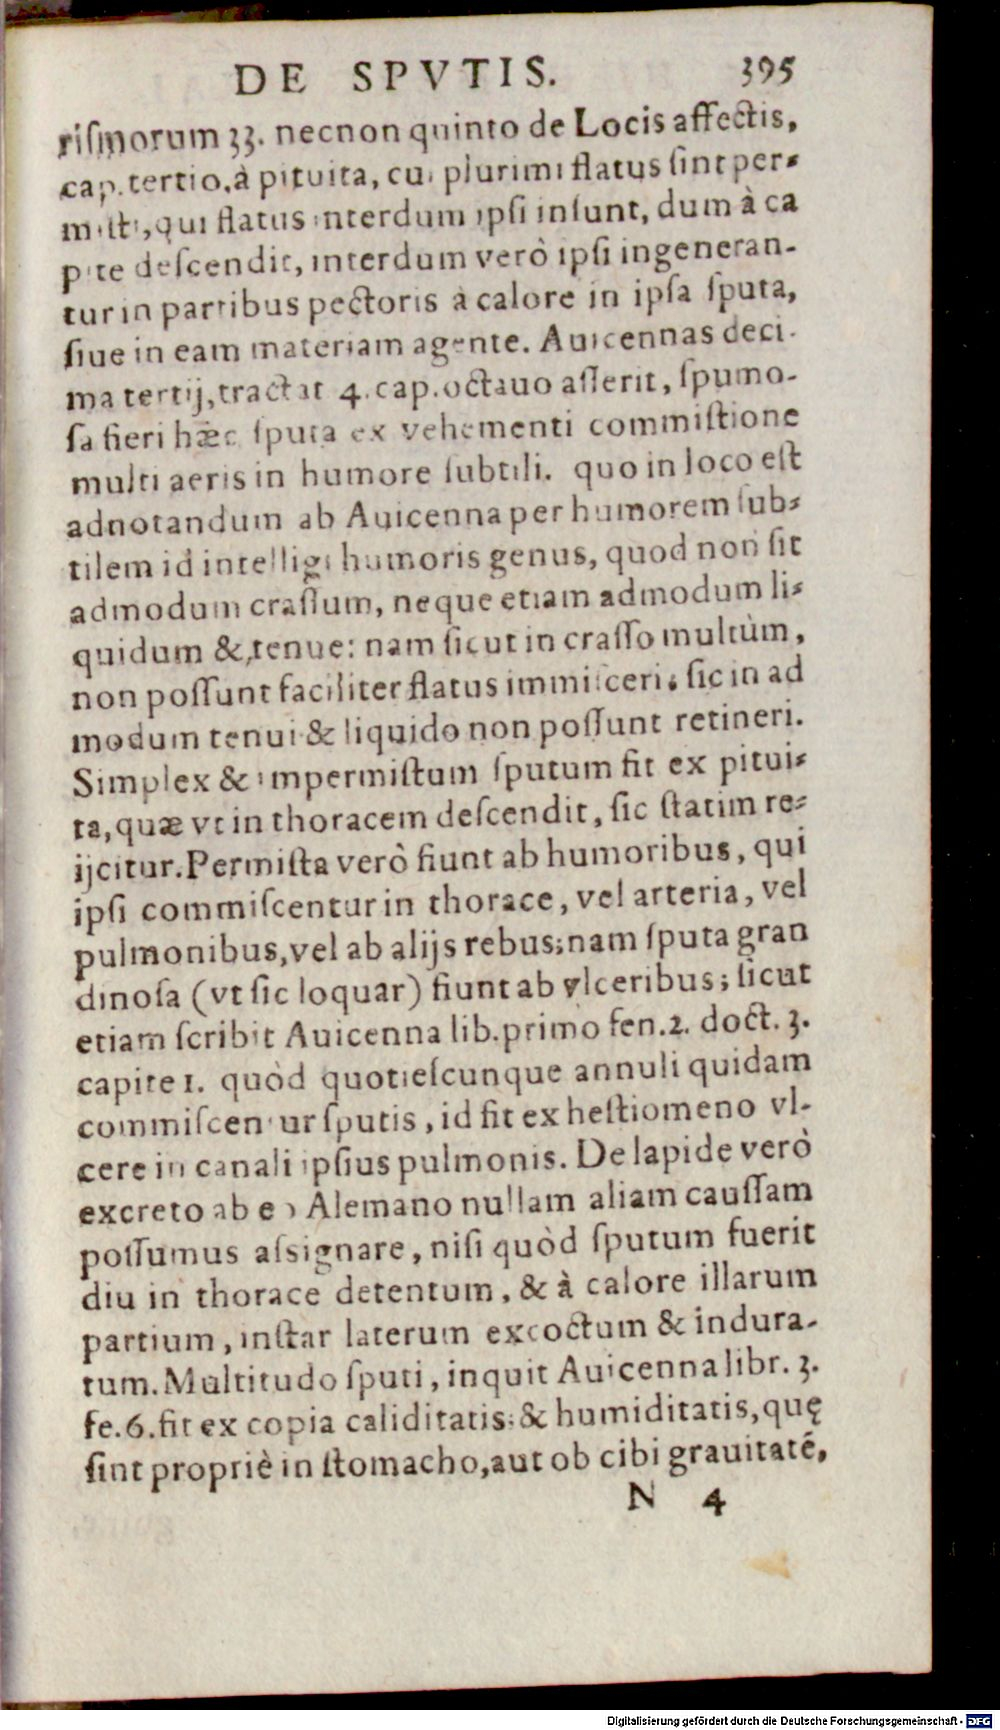 DE SPVTIS. 395
riſmorum 33. necnon quinto de Locis affectis,
cap. tertio, à pituita, cui plurimi flatus ſint per-
miſti, qui flatus interdum ipſi inſunt, dum à ca
pite deſcendit, interdum verò ipſi ingeneran-
tur in partibus pectoris à calore in ipſa ſputa,
ſiue in eam materiam agente. Auicennas deci-
ma tertij, tractat 4. cap. octauo aſſerit, ſpumo-
ſa fieri hæc ſputa ex vehementi commiſtione
multi aeris in humore ſubtili. quo in loco eſt
adnotandum ab Auicenna per humorem ſub-
tilem id intelligi humoris genus, quod non ſit
admodum craſſum, neque etiam admodum li-
quidum &, tenue: nam ſicut in craſſo multùm,
non poſſunt faciliter flatus immiſceri; ſic in ad
modum tenui & liquido non poſſunt retineri.
Simplex & impermiſtum ſputum fit ex pitui-
ta, quæ vt in thoracem deſcendit, ſic ſtatim re-
ijcitur. Permiſta verò fiunt ab humoribus, qui
ipſi commiſcentur in thorace, vel arteria, vel
pulmonibus, vel ab alijs rebus; nam ſputa gran
dinoſa (vt ſic loquar) fiunt ab vlceribus; ſicut
etiam ſcribit Auicenna lib. primo fen. 2. doct. 3.
capite 1. quòd quotieſcunque annuli quidam
commiſcentur ſputis, id fit ex heſtiomeno vl-
cere in canali ipſius pulmonis. De lapide verò
excreto ab eo Alemano nullam aliam cauſſam
poſſumus aſsignare, niſi quòd ſputum fuerit
diu in thorace detentum, & à calore illarum
partium, inſtar laterum excoctum & indura-
tum. Multitudo ſputi, inquit Auicenna libr. 3.
fe. 6. fit ex copia caliditatis: & humiditatis, quę
ſint propriè in ſtomacho, aut ob cibi grauitatē,
N 4
Digitalisierung gefördert durch die Deutsche Forschungsgemeinschaft - DFG